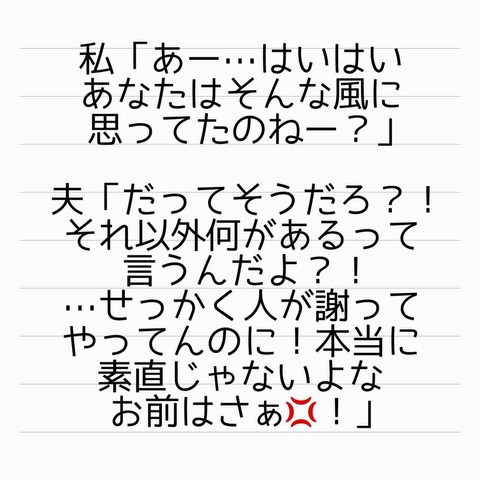 私「あー…はいはい
あなたはそんな風に
思ってたのねー？」
夫「だってそうだろ？！
それ以外何があるって
言うんだよ？！
…せっかく人が謝って
やってんのに！本当に
素直じゃないよな
お前はさぁ💢！」